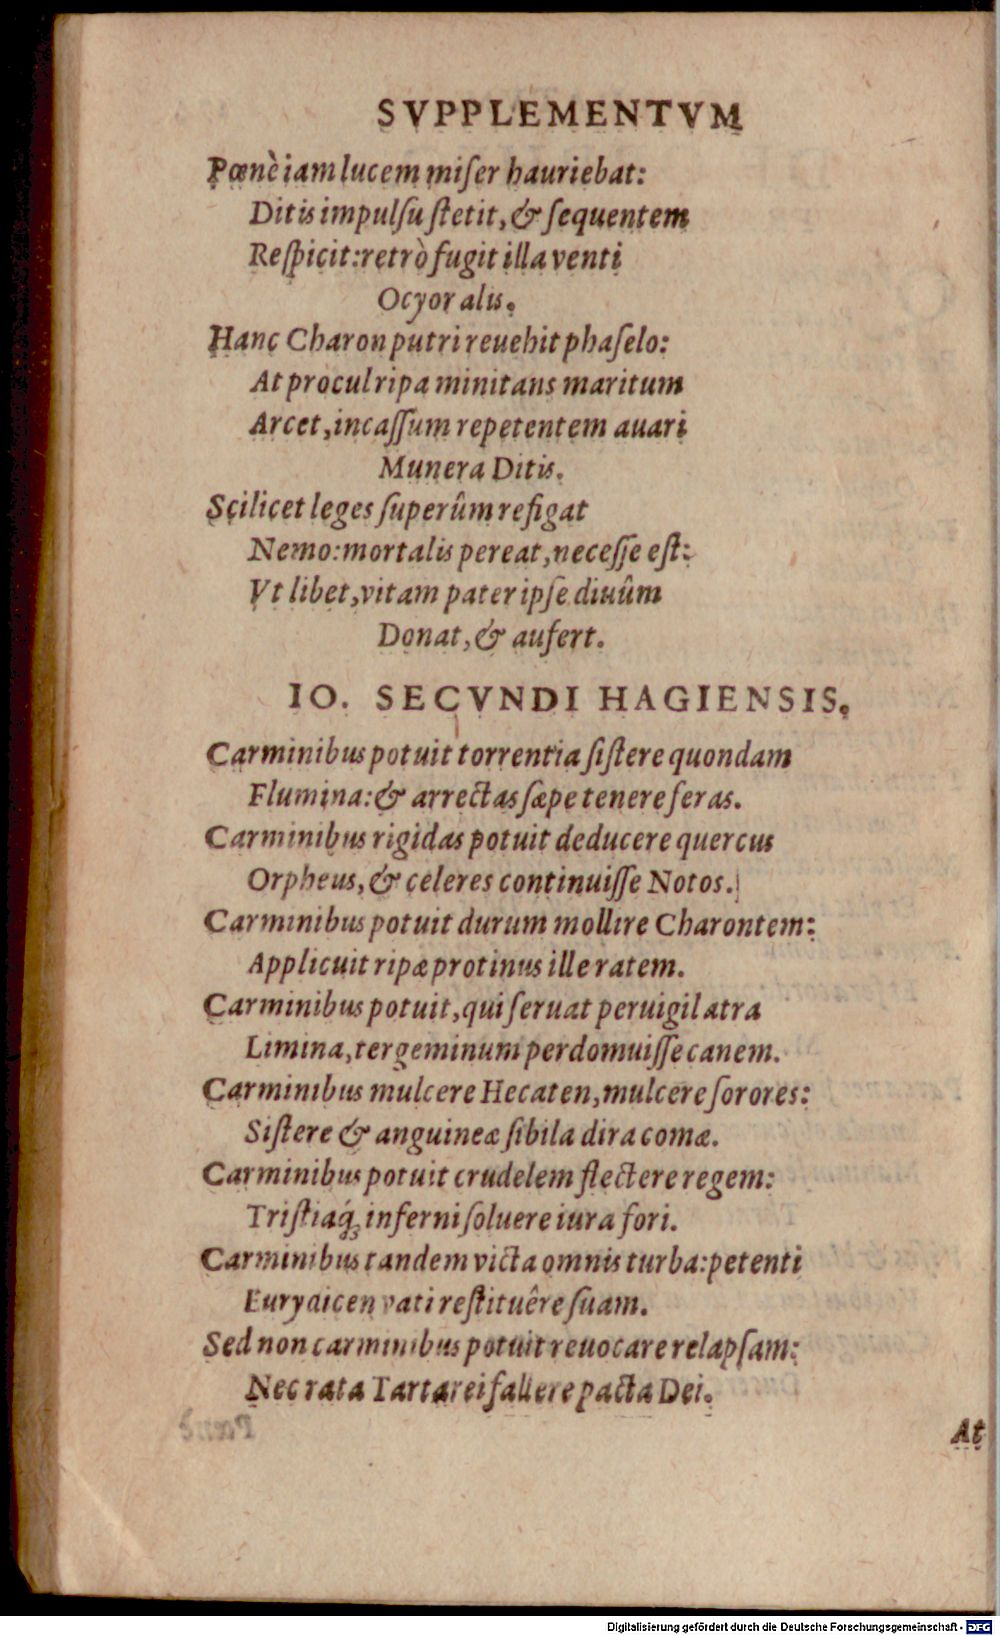 SVPPLEMENTVM
Pœnè iam lucem miſer hauriebat:
Ditis impulſu ſtetit, & ſequentem
Reſpicit: retrò fugit illa venti
Ocyor alis.
Hanc Charon putri reuehit phaſelo:
At procul ripa minitans maritum
Arcet, incaſſum repetentem auari
Munera Ditis.
Scilicet leges ſuperûm refigat
Nemo: mortalis pereat, neceſſe eſt:
Vt libet, vitam pater ipſe diuûm
Donat, & aufert.
IO. SECVNDI HAGIENSIS.
Carminibus potuit torrentia ſiſtere quondam
Flumina: & arrectas ſæpe tenere feras.
Carminibus rigidas potuit deducere quercus
Orpheus, & celeres continuiſſe Notos.
Carminibus potuit durum mollire Charontem:
Applicuit ripæ protinus ille ratem.
Carminibus potuit, qui ſeruat peruigil atra
Limina, tergeminum perdomuiſſe canem.
Carminibus mulcere Hecaten, mulcere ſorores:
Siſtere & anguineæ ſibila dira comæ.
Carminibus potuit crudelem flectere regem:
Triſtiaq́; inferni ſoluere iura fori.
Carminibus tandem victa omnis turba: petenti
Eurydicen vati reſtituêre ſuam.
Sed non carminibus potuit reuocare relapſam:
Nec rata Tartarei fallere pacta Dei.
At
Digitalisierung gefördert durch die Deutsche Forschungsgemeinschaft - DFG